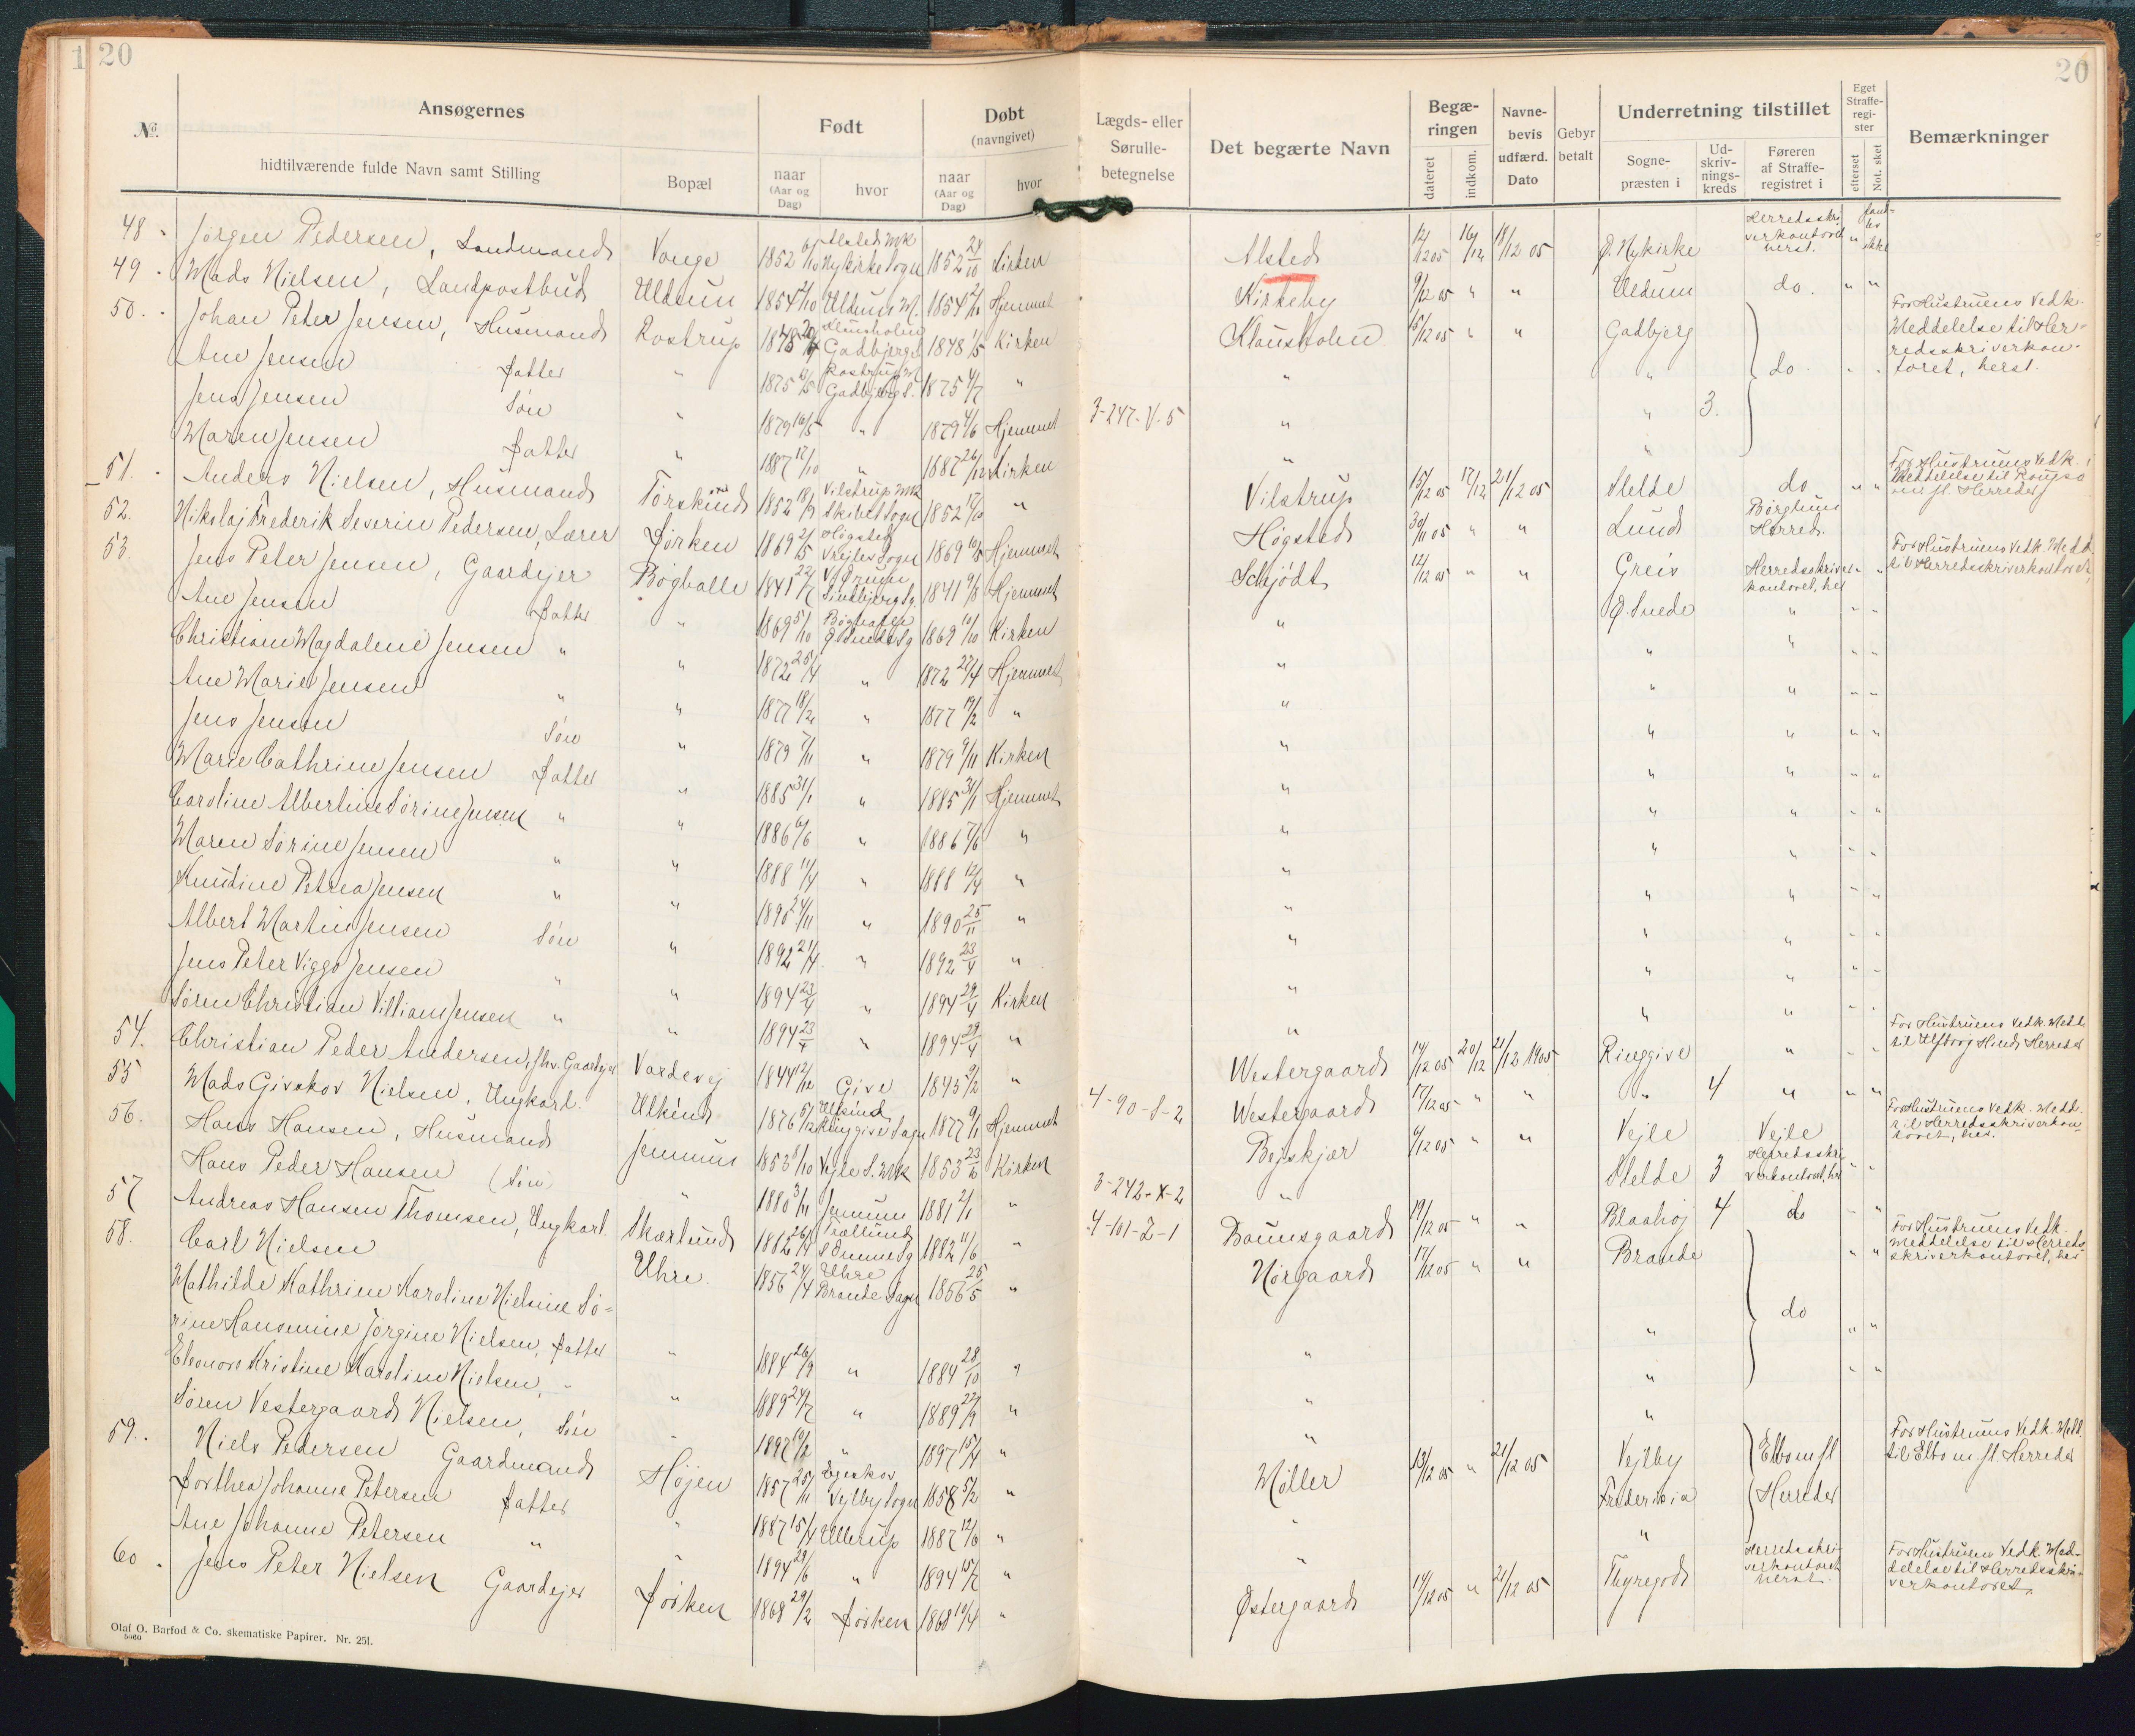 1 20
20
Ansøgernes
Født
Døbt
(navngivet)
№
hidtilværende fulde Navn samt Stilling
Bopæl
naar (Aar og Dag)
hvor
naar (Aar og Dag)
hvor
Lægds- eller Sørulle-betegnelse
Det begærte Navn
Begæringen
dateret
indkom.
Navnebevis udfærd. Dato
Gebyr betalt
Underretning tilstillet
Sognepræsten i
Udskrivningskreds
Føreren af Strafferegistret i
Eget Strafferegister
efterset
Not. sket
Bemærkninger
48. Jörgen Pedersen, Landmand Vonge 1852 6/10 Alsted Mk Nykirke Sogn 1852 24/10 Kirken Alsted 12/12 05 16/12 18/12 05 Ø. Nykirke Herredsskriverkontoret herst. "
49. Mads Nielsen, Landpostbud Uldum 1854 Uldum 1854 Hjemmet Kirkeby 9/12 05 " " Uldum do. " "
50. Johan Peter Jensen, Husmand Rostrup 1848 Klausholm Gadbjerg 1848 1/5 Kirken Klausholm 15/12 05 " " Gadbjerg do. For Hustruens Vedk. Meddelelse til Herredsskriverkontoret, herst.
Ane Jensen Datter " 1875 6/5 Rostrup Gadbjerg S. 1875 4/7 " " "
Jens Jensen Søn " 1879 16/5 " 1879 4/6 Hjemmet 3-247-V.5 " " 3.
Maren Jensen Datter " 1887 17/10 " 1887 26/12 Kirken " "
51. Anders Nielsen, Husmand Törskind 1852 18/9 Vilstrup Mk Skibet Sogn 1852 17/10 " Vilstrup 15/12 05 17/12 21/12 05 Slelde do " " For Hustruens Vedk. Meddelelse til Rougsø m fl. Herreder
52. Nikolaj Frederik Severin Pedersen, Lærer Dörken 1869 2/5 Högsted Vrejlev Sogn 1869 10/5 Hjemmet Högsted 30/11 05 " " Lund Börglum Herred.
53. Jens Peter Jensen, Gaardejer Böghalle 1841 22/7 Sindbjerg Sg 1841 9/8 Hjemmet Schjödt 12/12 05 " " Greis Herredsskriverkontoret, her " For Hustruens Vedk. Medd. til Herredsskriverkontoret,
Ane Jensen Datter " 1869 5/10 Ø Snede Sg 1869 10/10 Kirken " Ø. Snede " " "
Christiane Magdalene Jensen " " 1872 25/4 " 1872 27/4 Hjemmet " " " " "
Ane Marie Jensen " " 1877 18/2 " 1877 19/2 " " " " " "
Jens Jensen Søn " 1879 7/11 " 1879 9/11 Kirken " " " " "
Marie Cathrine Jensen Datter " 1885 31/1 " 1885 31/1 Hjemmet " " " " "
Caroline Albertine Sørine Jensen " " 1886 6/6 " 1886 7/6 " " " " " "
Maren Sørine Jensen " " 1888 11/4 " 1888 12/4 " " " " " "
Knudine Petrea Jensen " " 1890 24/11 " 1890 25/11 " " " " " "
Albert Martin Jensen Søn " 1892 21/4 " 1892 23/4 " " " " " "
Jens Peter Viggo Jensen " " 1894 23/4 " 1894 29/4 Kirken " " " " "
Søren Christian Villiam Jensen " " 1894 23/4 " 1894 29/4 " " " " " "
54. Christian Peder Andersen, fhv. Gaardejer Vardevej 1844 12/12 Give 1845 9/2 " Westergaard 14/12 05 20/12 21/12 1905 Ringgive " For Hustruens Vedk. Medd. til Ulfborg Hind Herreder
55 Mads Givskov Nielsen, Ungkarl. Ulkind 1876 5/12 Ulkind Ringgive Sogn 1877 9/1 Hjemmet 4-90-S-2 Westergaard 17/12 05 " " " 4 " " "
56. Hans Hansen, Husmand Jennum 1853 8/10 Vejle S. Mk 1853 23/10 Kirken Bejskjær 6/12 05 " " Vejle Vejle For Hustruens Vedk. Medd. til Herredsskriverkontoret, her.
Hans Peder Hansen (Søn) " 1880 3/11 Jennum 1881 2/1 " 3-242-X-2 " Slelde 3 Herredsskriverkontoret, her " "
57 Andreas Hansen Thomsen, Ungkarl. Skærlund 1882 26/4 Trællund S Omme Sg 1882 11/6 " 4-101-Z-1 Daunsgaard 19/12 05 " " Blaahøj 4 do " "
58. Carl Nielsen Uhre. 1856 24/4 Uhre Brande Sogn 1856 25/5 " Nørgaard 17/12 05 " " Brande do " " For Hustruens Vedk. Meddelelse til Herredsskriverkontoret, her
Mathilde Kathrine Karoline Nielsine Sørine Hansemine Jørgine Nielsen, Datter " 1884 26/9 " 1884 28/10 " " " " "
Eleonore Kristine Karoline Nielsen, " " 1889 24/7 " 1889 22/9 " " " " "
Søren Vestergaard Nielsen, Søn " 1897 " 1897 15/4 " " "
59. Niels Pedersen Gaardmand Højen 1857 25/11 Egeskov Vejlby Sogn 1858 5/2 " Møller 13/12 05 " 21/12 05 Vejlby Elbo m fl Herreder For Hustruens Vedk. Medd. til Elbo m. fl. Herreder
Dorthea Johanne Petersen Datter " 1887 15/4 Ullerup 1887 12/6 " " Fredericia
Ane Johanne Petersen " " 1894 29/6 " 1894 15/7 " " "
60. Jens Peter Nielsen Gaardejer Dörken 1868 29/2 Dörken 1868 10/4 " Østergaard 14/12 05 " 21/12 05 Thyregod Herredsskriverkontoret herst. For Hustruens Vedk. Meddelelse til Herredsskriverkontoret.
Olaf O. Barfod & Co. skematiske Papirer. Nr. 251.
5060